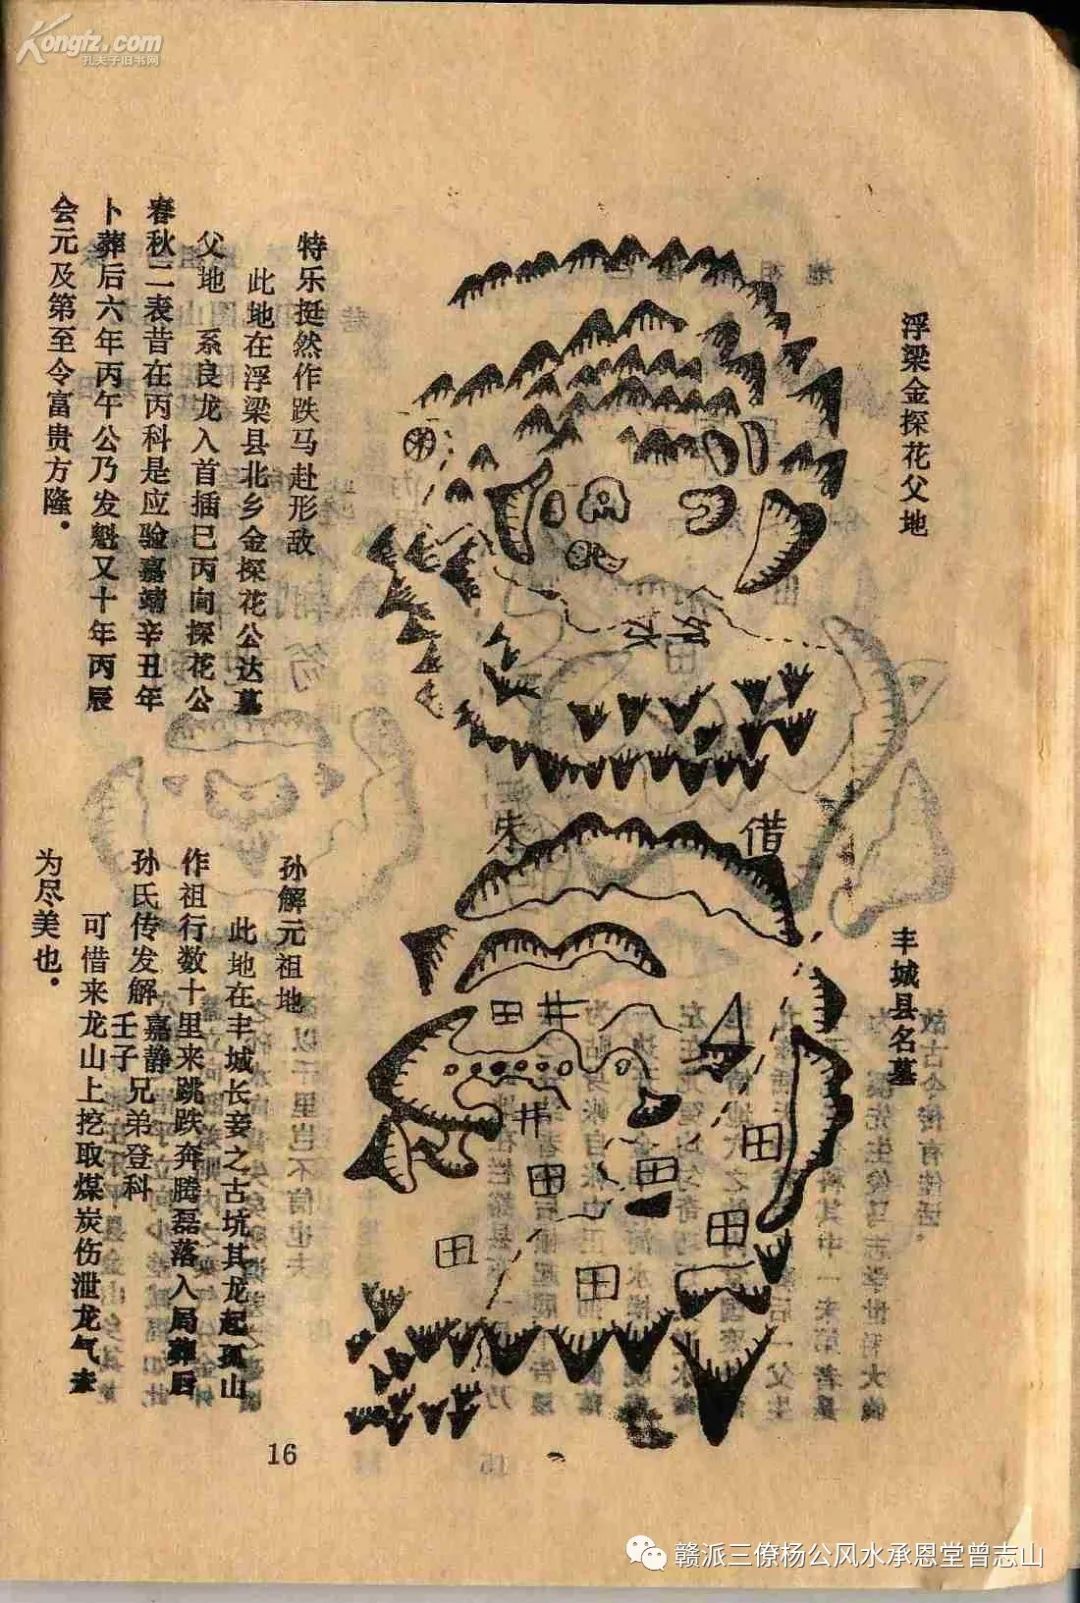 Kongfz.com
孔夫子旧书网
浮梁金探花父地
特乐挺然作跌马赴形敌
此地在浮梁县北乡金探花公达墓
父地　系良龙入首插巳丙向探花公
春秋二表昔在丙科是应验嘉靖辛丑年
卜葬后六年丙午公乃发魁又十年丙辰
会元及第至令富贵方隆．
朱
借
田
田
田
田
田
田
田
丰城县名墓
孙解元祖地
此地在丰城长妾之古坑其龙起孤山
作祖行数十里来跳跌奔腾磊落入局葬后
孙氏传发解嘉静兄弟登科
壬子
可借来龙山上挖取煤炭伤泄龙气未
为尽美也．
16
赣派三僚杨公风水承恩堂曾志山